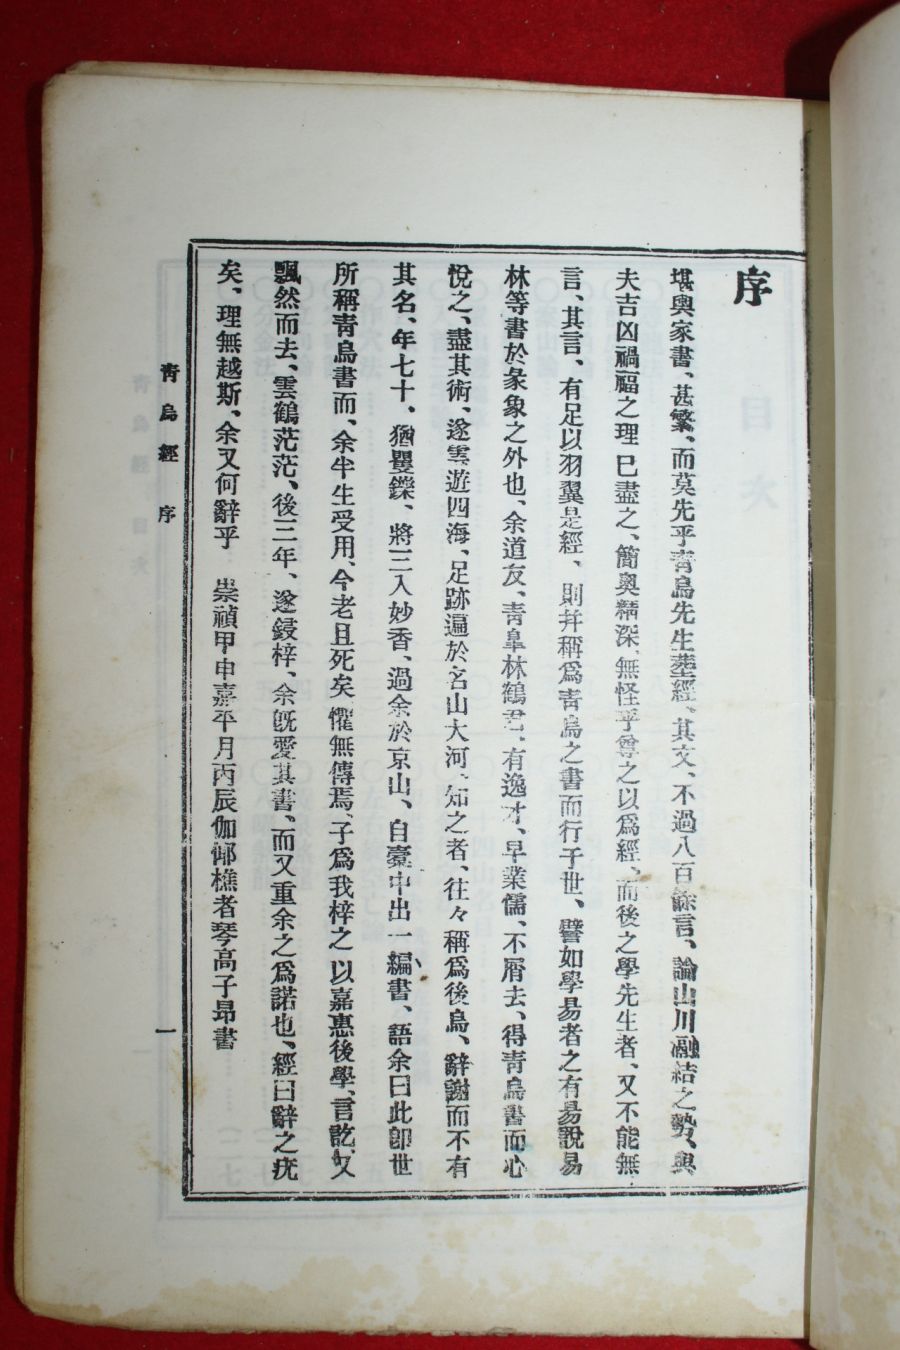 序
堪輿家書、甚繁、而莫先乎靑烏先生葬經、其文、不過八百餘言、論山川融結之勢、與
夫吉凶禍福之理已盡之、簡奧精深、無怪乎尊之以爲經、而後之學先生者、又不能無
言、其言、有足以羽翼是經、則幷稱爲靑烏之書而行于世、譬如學易者之有易說易
林等書於彖象之外也、余道友、靑皐林鶴君、有逸才、早業儒、不屑去、得靑烏書而心
悅之、盡其術、遂雲遊四海、足跡遍於名山大河、知之者、往々稱爲後烏、辭謝而不有
其名、年七十、猶矍鑠、將三入妙香、過余於京山、自槖中出一編書、語余曰此卽世
所稱靑烏書而、余半生受用、今老且死矣、懼無傳焉、子爲我梓之以嘉惠後學、言訖、又
飄然而去、雲鶴茫茫、後三年、遂鋟梓、余旣愛其書、而又重余之爲諾也、經曰辭之疣
矣、理無越斯、余又何辭乎 崇禎甲申嘉平月丙辰伽倻樵者琴高子昻書
靑烏經 序 一